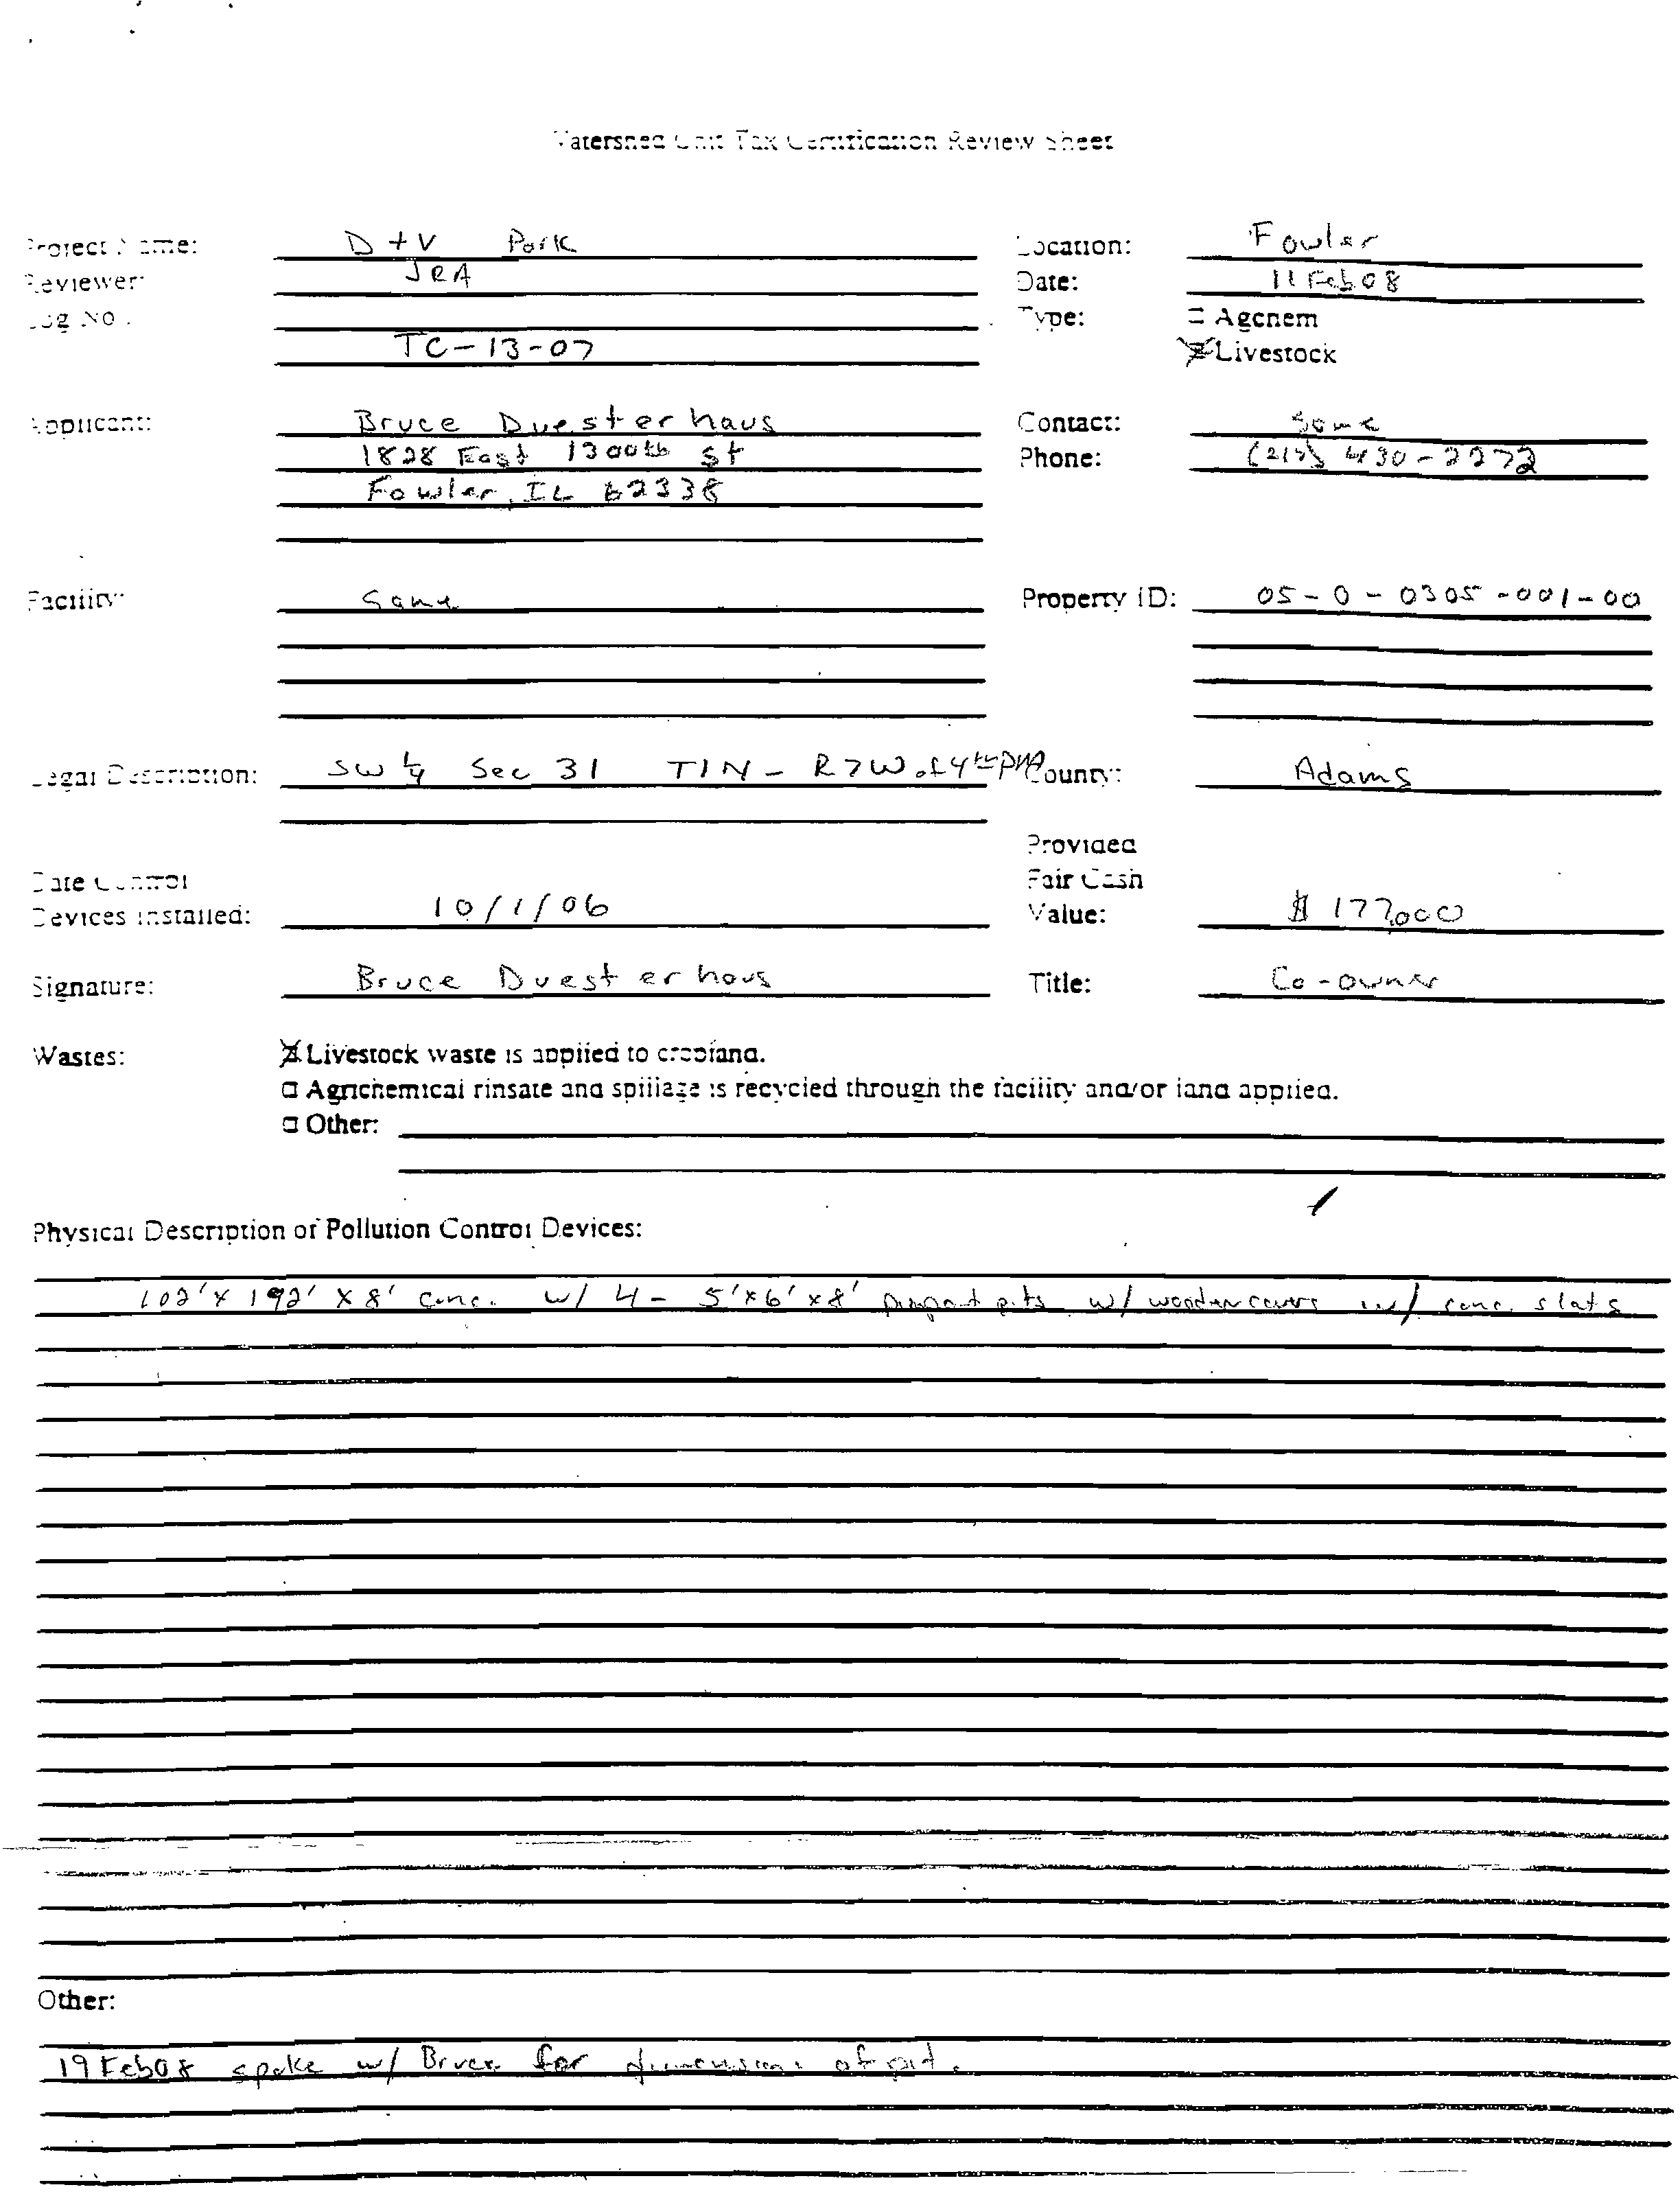 Watershed Unit Tax Certification Review Sheet
Project Name: D + V Pork Location: Fowler
Reviewer: JRA Date: 11 Feb 08
Log No.: Type: □ Agchem
TC-13-07 Livestock
Applicant: Bruce Duesterhaus Contact: Same
1828 East 1300th St Phone: (217) 430-2272
Fowler, IL 62338
Facility: Same Property ID: 05-0-0305-001-00
Legal Description: SW 1/4 Sec 31 T1N - R7W of 4th PM County: Adams
Provided
Date Control Fair Cash
Devices Installed: 10/1/06 Value: $ 177,000
Signature: Bruce Duesterhaus Title: Co-owner
Wastes: Livestock waste is applied to cropland.
□ Agrichemical rinsate and spillage is recycled through the facility and/or land applied.
□ Other:
Physical Description of Pollution Control Devices:
102' x 192' x 8' conc. w/ 4 - 5'x6'x8' pits w/ wooden covers w/ conc. slats
Other:
19 Feb 08 spoke w/ Bruce for dimensions of pit.